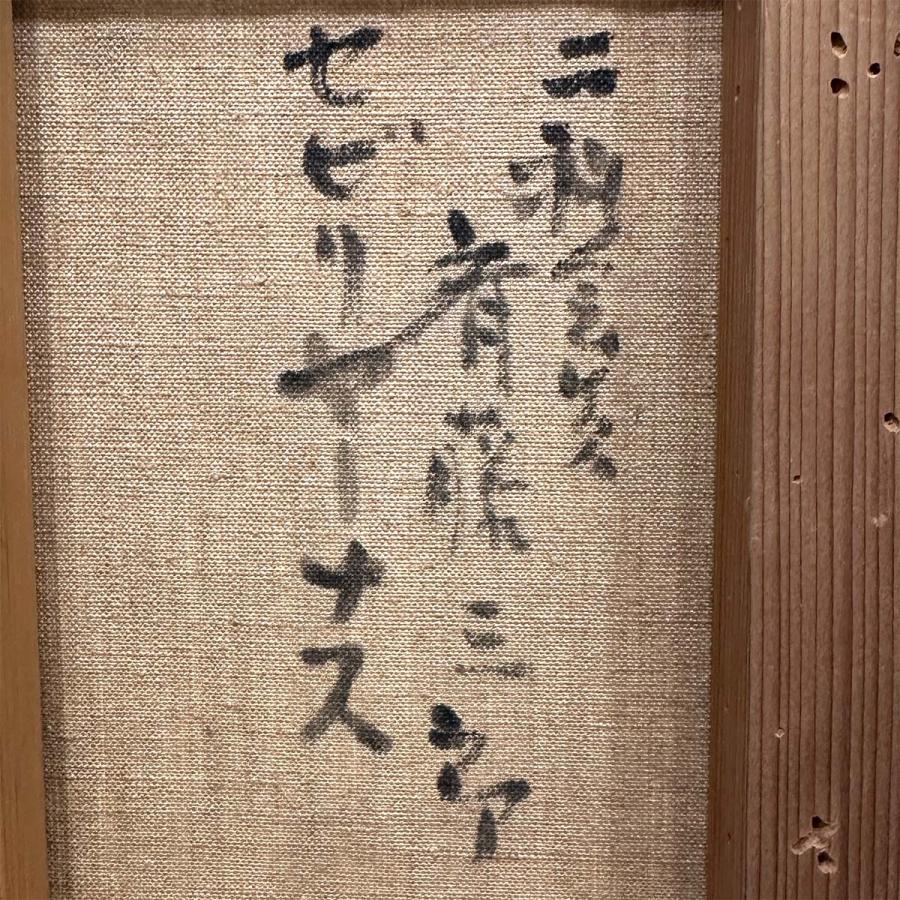 二科会員
斉藤三郎
セビリヤーナス